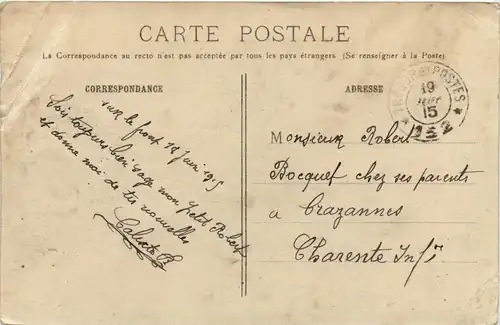 CARTE POSTALE
La Correspondance au recto n'est pas acceptée par tous les pays étrangers (Se renseigner à la Poste)
CORRESPONDANCE
sur le front 18 Juin 1915
Sois toujours bien sage mon Petit Robert
et donne moi de tes nouvelles
ADRESSE
POSTES
19
15
152
Monsieur Robert
Bocquet chez ses parents
a Crazannes
Charente Infre